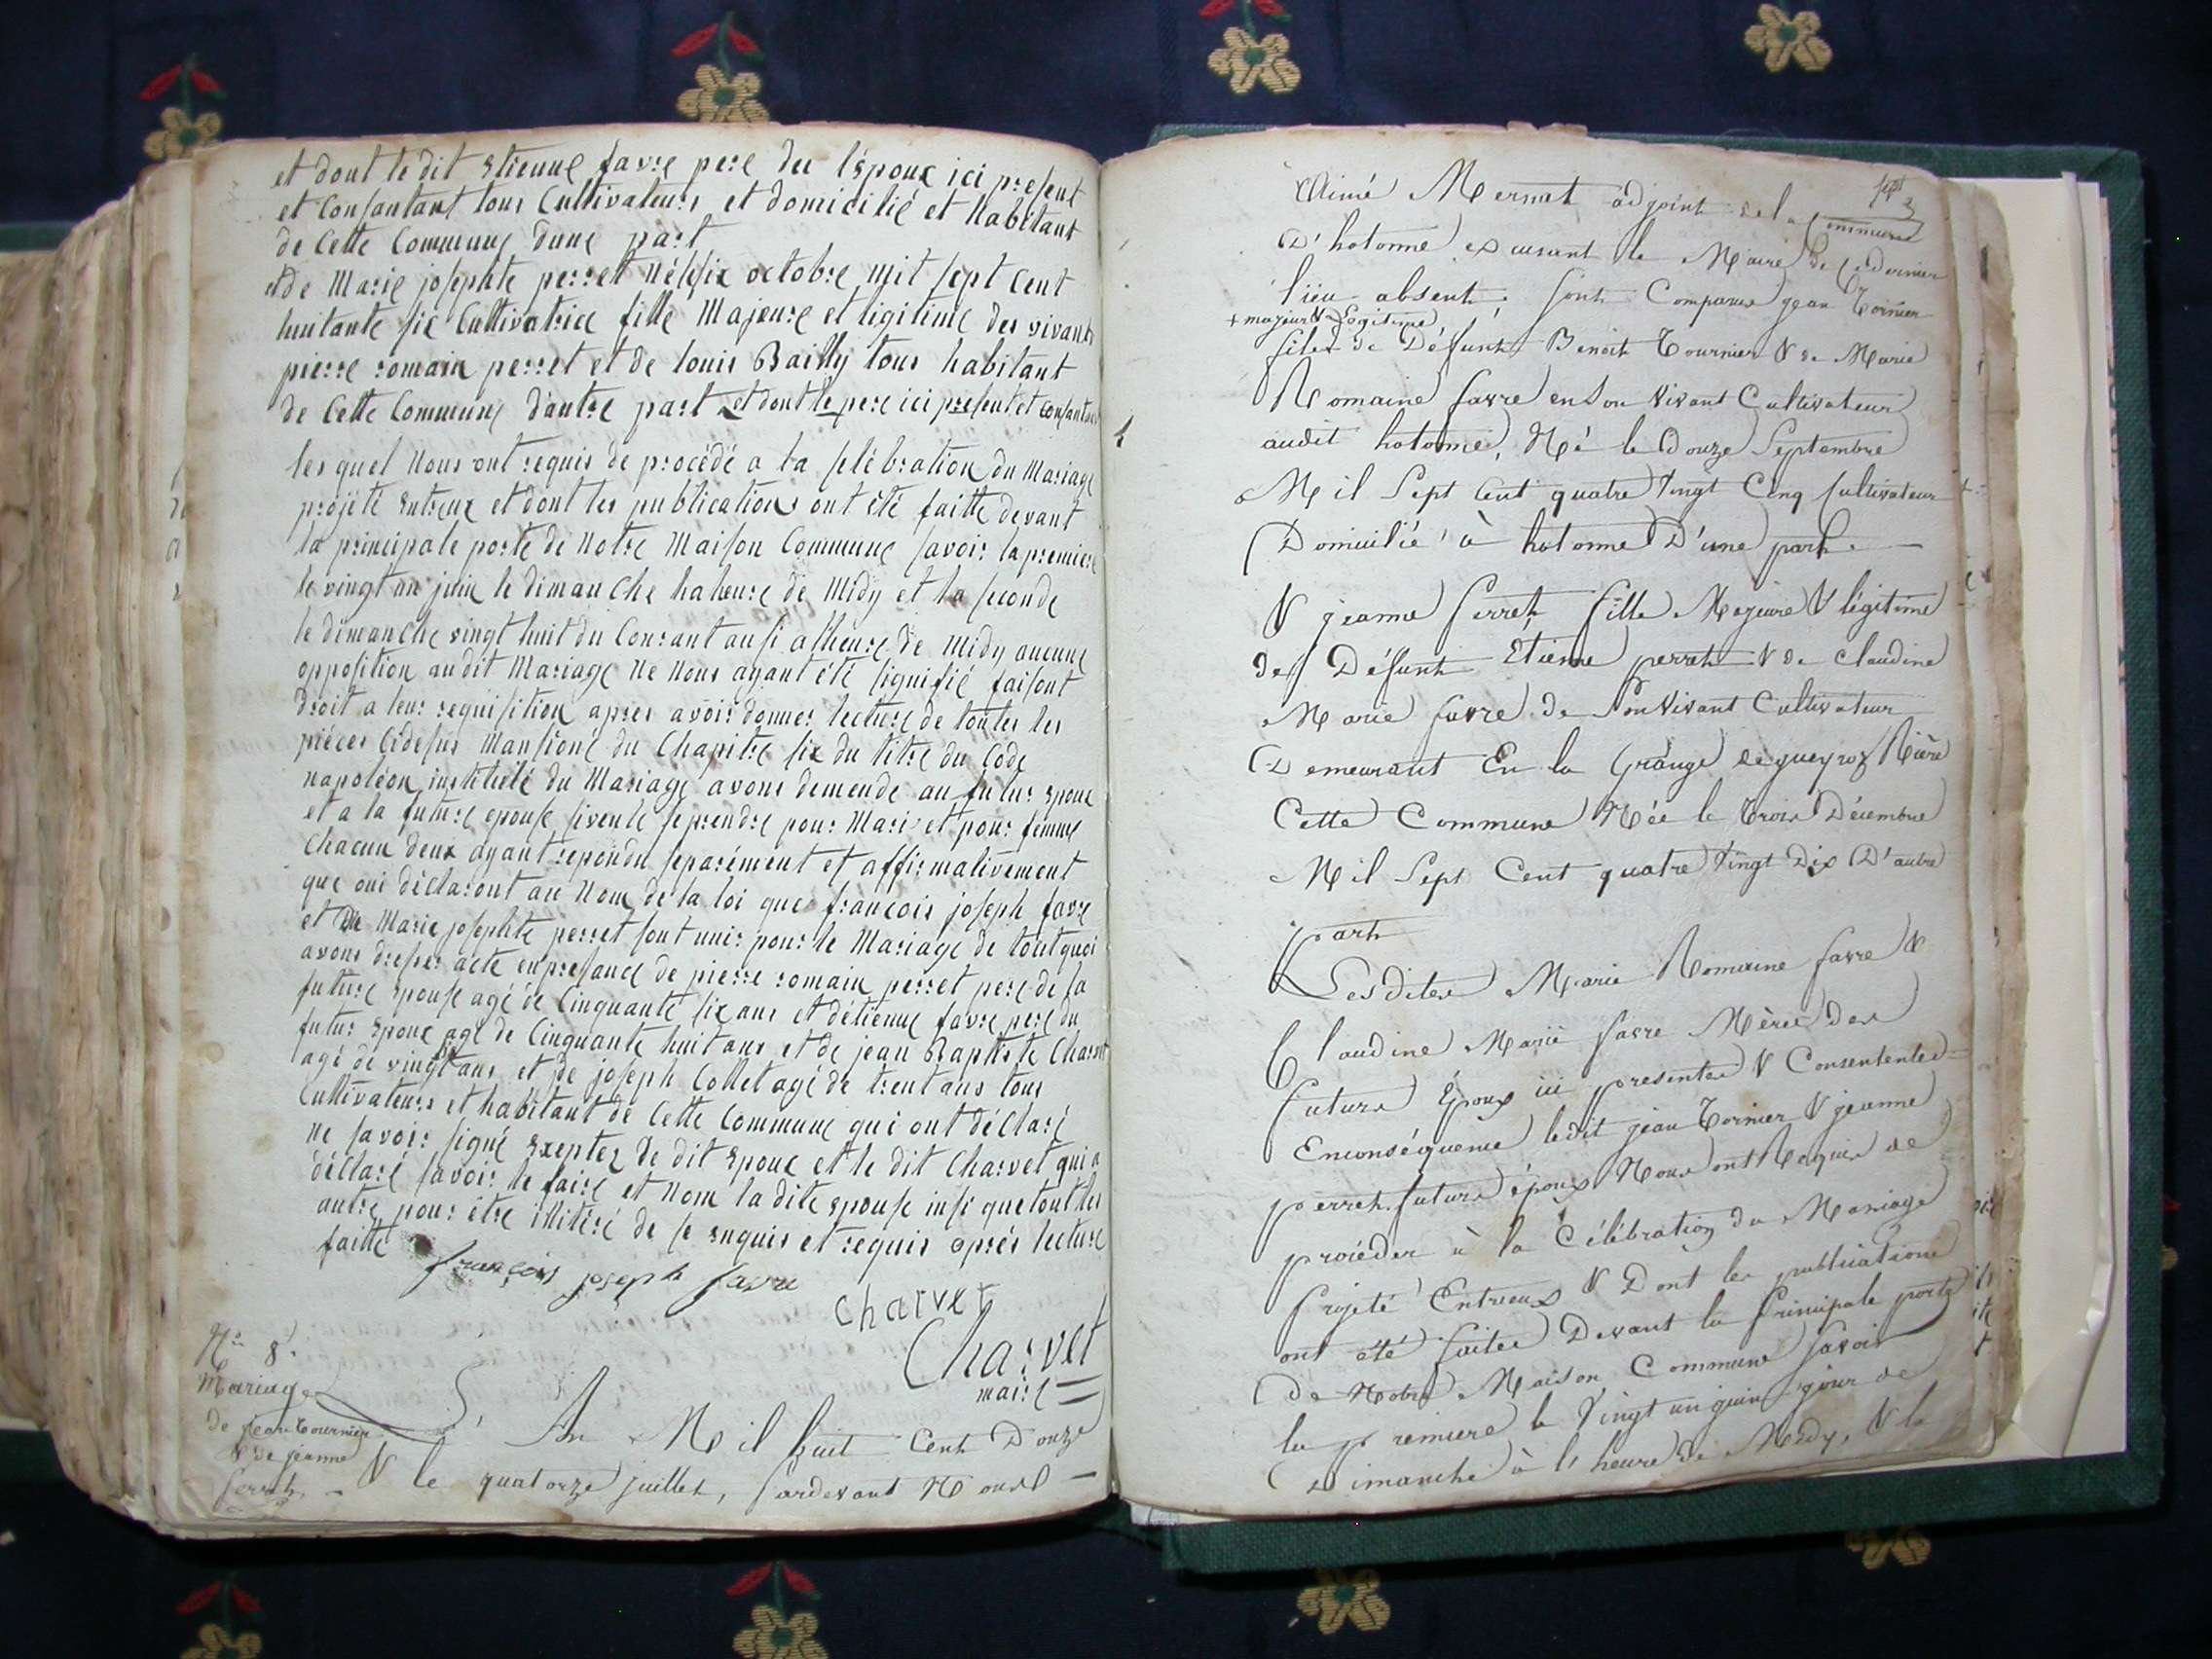 et dont le dit Etienne favre pere du l'époux ici present
et consantant tous Cultivateurs et domicilié et habitant
de Cette Commune dune part
et de Marie josephte perret né le six octobre mil sept cent
huitante sic Cultivatrice fille Majeure et legitime des vivants
pierre romain perret et de louis Bailly tous habitant
de Cette Commune d'autre part et dont le pere ici present et consantant
les quel Nous ont requis de procédé a la selébration du Mariage
projété entreux et dont les publications ont été faitte devant
la principale porte de Notre Maison Commune savoir la premiere
le vingt un juin le dimanche ha heure de Midy et la seconde
le dimanche vingt huit du Courant ausi a lheure de midy aucune
opposition audit Mariage Ne Nous ayant été signifié faisont
droit a leur requisition apres avoir donner lecture de toutes les
piéces cidesus mansioné du Chapitre six du titre du Code
napoléon justitulé du Mariage avons demendé au futur epoux
et a la future epouse sivente se prendre pour Mari et pour femme
Chacun deux ayant repondu separément et affirmativement
que oui déclaront au Nom de la loi que françois joseph favre
et de Marie josephte perret sont unir pour le Mariage de tout quoi
avons dresser acte en presance de pierre romain perret pere de la
future epouse agé de Cinquante six ans et détienne favre pere du
futur epoux agé de Cinquante huit ans et de jean Baptiste Charvet
agé de vingt ans et de joseph Collet agé de trent ans tous
Cultivateurs et habitant de Cette Commune qui ont déclaré
Ne savoir signé exeptez le dit epoux et le dit Charvet qui a
déclaré savoir le faire et Nom la dite epouse insi que tout les
autre pour être illitéré de se enquis et requis aprés lecture
faitte
françois joseph favre
Charvet
Charvet
maire
No 8
Mariage
de Jean Tournier
& de jeanne
Perret
L'An Mil huit Cent Douze
& le quatorze juillet, Pardevant Nous
sept
3
Aimé Mernat adjoint de la Commune
D'hotonne excusant le Maire de ce dernier
lieu absent, sont Comparus jean Tornier
+ majeur & Legitime
fils de Défunt Benoit Tournier & de Marie
Romaine favre en Son Vivant Cultivateur
audit hotonne, Né le Douze Septembre
Mil Sept Cent quatre Vingt Cinq Cultivateur
Domicilié à hotonne D'une part.
& jeanne Perret fille Majeure & légitime
de Défunt Etienne perret & de Claudine
Marie favre de Son Vivant Cultivateur
Demeurant En la Grange Rière
Cette Commune Née le Trois Décembre
Mil Sept Cent quatre Vingt Dix D'autre
part
Lesdites Marie Romaine favre &
Claudine Marie favre Mères des
future Époux ici presentes & Consententes
Enconséquence ledit jean Tornier & jeanne
perret future époux Nous ont Requis de
procéder à la Célébration du Mariage
Projeté Entreeux & Dont les publications
ont été faites Devant la Principale porte
de Notre Maison Commune Savoir
la premiere le Vingt un juin jour de
Dimanche à l'heure de Midy, & la